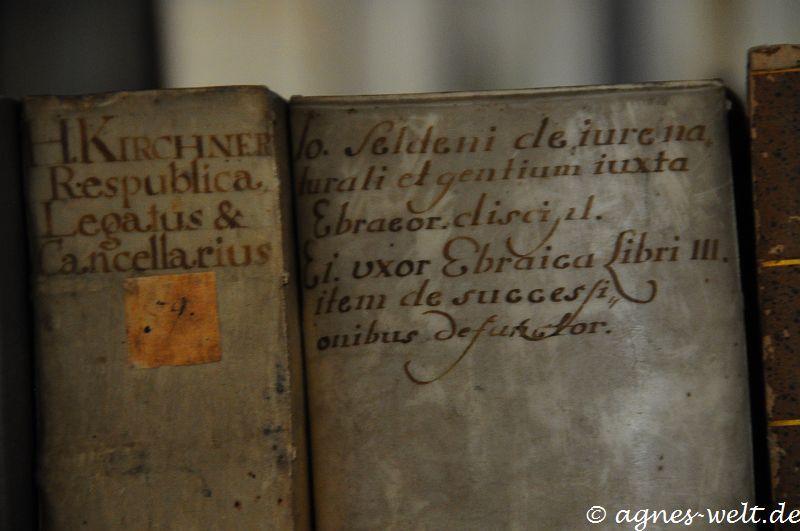 H. KIRCHNER
Respublica,
Legatus &
Cancellarius
59.
Io. Seldeni de iure na„
turali et gentium iuxta
Ebraeor. discipl.
Ei. uxor Ebraica Libri III.
item de successi„
onibus defunctor.
© agnes-welt.de